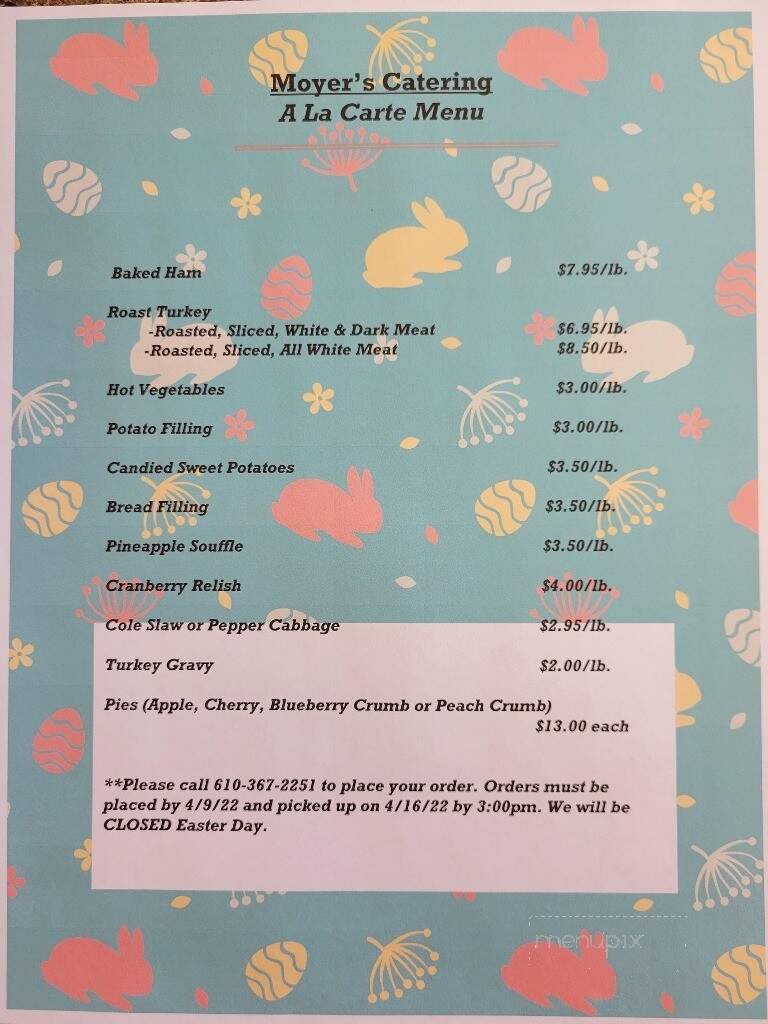 Moyer's Catering
A La Carte Menu
Baked Ham $7.95/lb.
Roast Turkey
-Roasted, Sliced, White & Dark Meat $6.95/lb.
-Roasted, Sliced, All White Meat $8.50/lb.
Hot Vegetables $3.00/lb.
Potato Filling $3.00/lb.
Candied Sweet Potatoes $3.50/lb.
Bread Filling $3.50/lb.
Pineapple Souffle $3.50/lb.
Cranberry Relish $4.00/lb.
Cole Slaw or Pepper Cabbage $2.95/lb.
Turkey Gravy $2.00/lb.
Pies (Apple, Cherry, Blueberry Crumb or Peach Crumb)
$13.00 each
**Please call 610-367-2251 to place your order. Orders must be
placed by 4/9/22 and picked up on 4/16/22 by 3:00pm. We will be
CLOSED Easter Day.
menupix